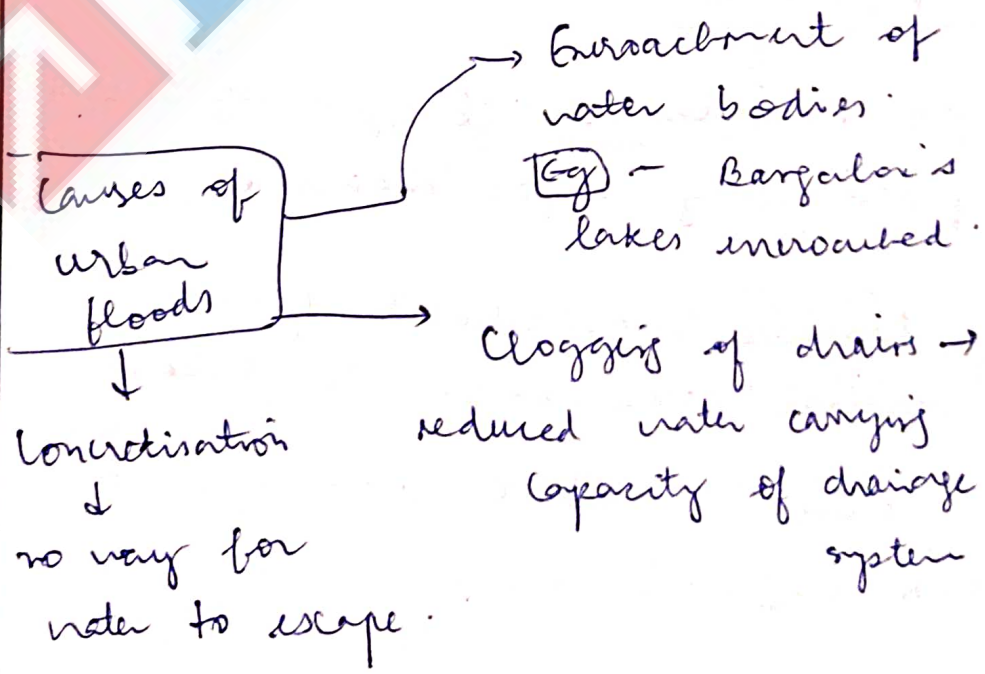 Causes of
urban
floods
→ Encroachment of
water bodies.
Eg - Bangalore's
lakes encroached.
Clogging of drains →
reduced water carrying
capacity of drainage
system
↓
Concretisation
↓
no way for
water to escape.